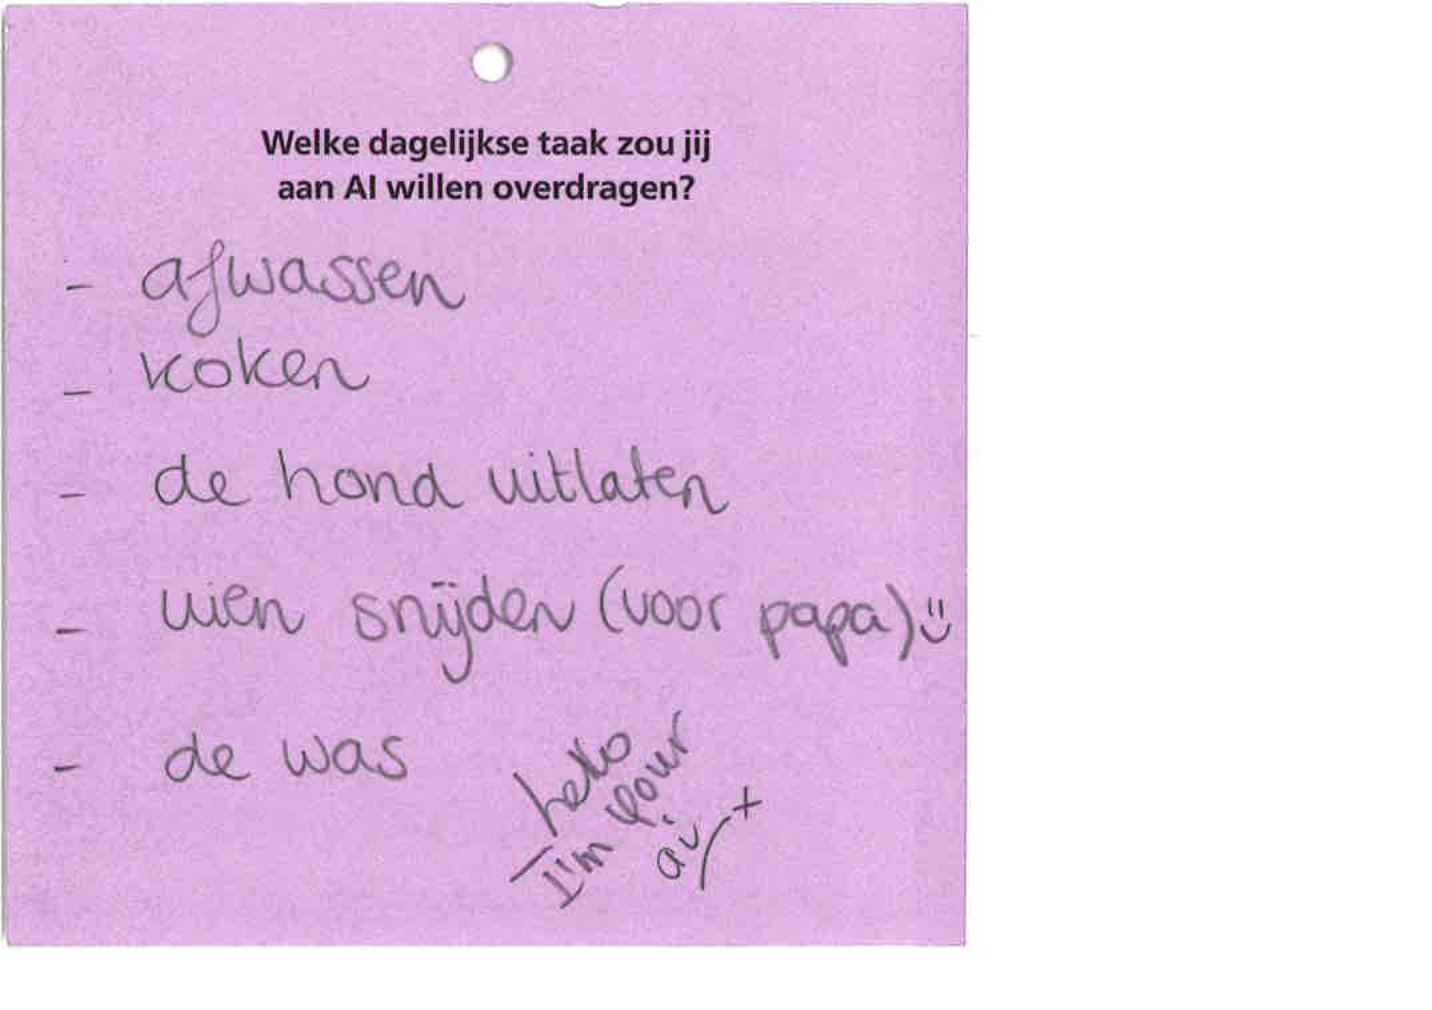 Welke dagelijkse taak zou jij
aan AI willen overdragen?
- afwassen
- koken
- de hond uitlaten
- uien snijden (voor papa)
- de was
hello
I'm your
ai